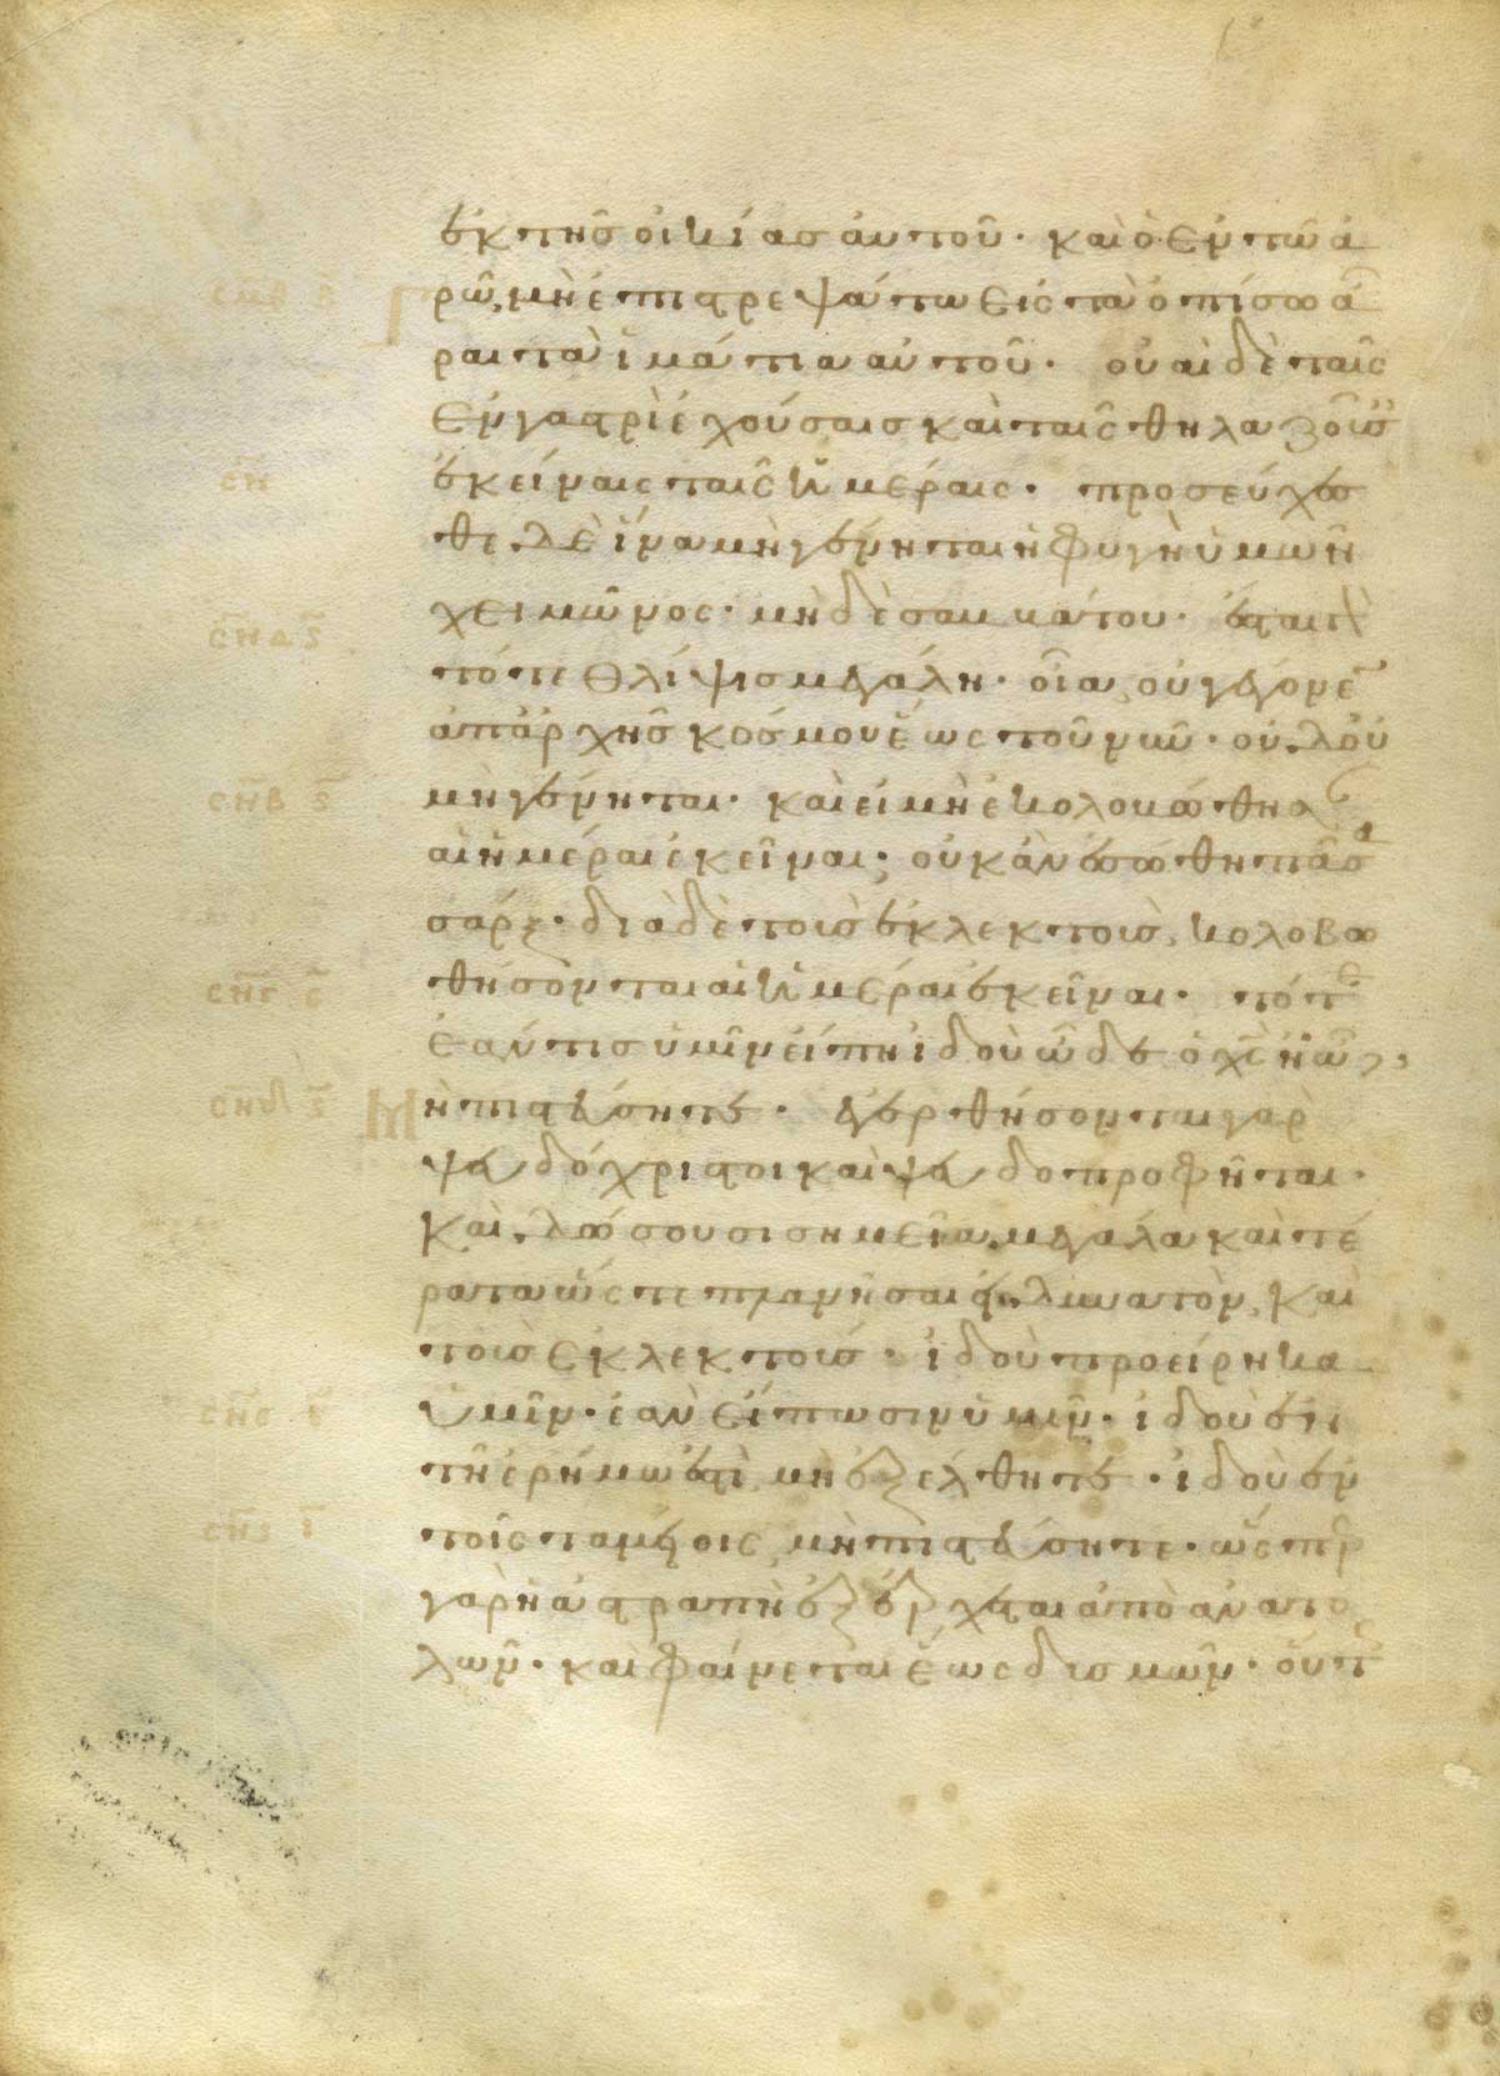 ἐκ τῆς οἰκίας αὐτοῦ· καὶ ὁ ἐν τῶ ἀ
ρῶ, μὴ ἐπιστρεψάτω εἰς τὰ ὀπίσω ἆ
ραι τὰ ἱμάτια αὐτοῦ· οὐαὶ δὲ ταῖς
ἐν γαστρὶ ἐχούσαις καὶ ταῖς θηλαζοῖς
ἐκείναις ταῖς ἡμέραις· προσεύχεσ
θε δὲ ἵνα μὴ γένηται ἡ φυγὴ ὑμῶν
χειμῶνος· μηδὲ σαββάτου· ἔσται
τότε θλίψις μεγάλη· οἵα οὐ γέγονε
ἀπαρχῆς κόσμου ἕως τοῦ νῦν· οὐδ οὐ
μὴ γένηται· καὶ εἰ μὴ ἐκολοβώθησ
αἱ ἡμέραι ἐκεῖναι· οὐκ ἂν ἐσώθη πᾶσα
σάρξ· διὰ δὲ τοὺς ἐκλεκτοὺς, κολοβω
θήσονται αἱ ἡμέραι ἐκεῖναι· τότε
ἐάν τις ὑμῖν εἴπη ἰδοὺ ὧδε ὁ χς ἢ ὧδε,
μὴ πιστεύσητε· ἐγερθήσονται γὰρ
ψευδόχριστοι καὶ ψευδοπροφῆται·
καὶ δώσουσι σημεῖα μεγάλα καὶ τέ
ρατα ὥστε πλανῆσαι εἰ δυνατὸν, καὶ
τοὺς ἐκλεκτούς· ἰδοὺ προείρηκα
ὑμῖν· ἐὰν εἴπωσιν ὑμῖν· ἰδοὺ ἐν
τῆ ἐρήμω ἐστὶ, μὴ ἐξέλθητε· ἰδοὺ ἐν
τοῖς ταμείοις, μὴ πιστεύσητε· ὥσπερ
γὰρ ἡ ἀστραπὴ ἐξέρχεται ἀπὸ ἀνατο
λῶν· καὶ φαίνεται ἕως δυσμῶν· οὕτ